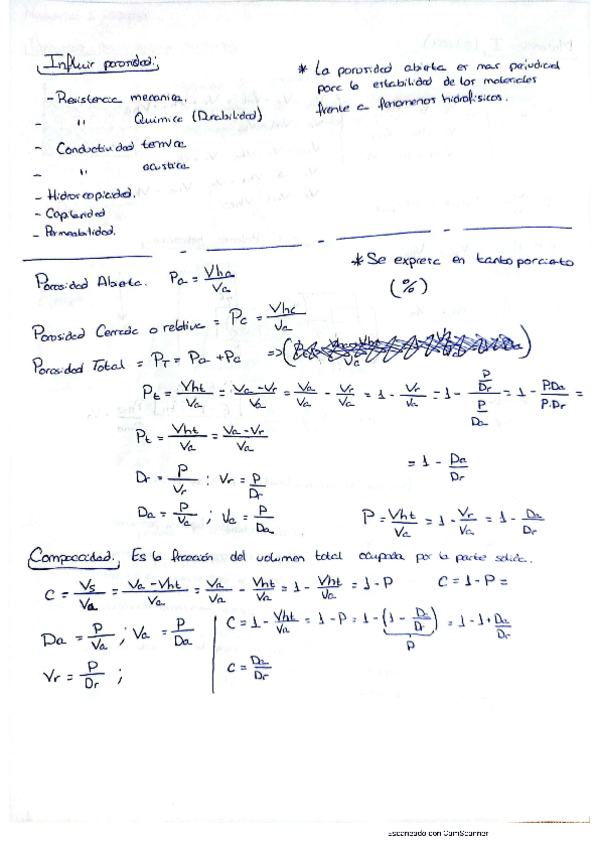 Influir porosidad:
- Resistencia mecanica.
- " Quimica (Durabilidad)
- Conductividad termica
- " acustica
- Hidroscopicidad.
- Capilaridad
- Permeabilidad.
* La porosidad abierta es mas perjudicial
para la estabilidad de los materiales
frente a fenomenos hidrofisicos.
* Se expresa en tanto por ciento
(%)
Porosidad Abierta. Pa = Vha/Va
Porosidad Cerrada o relativa = Pc = Vhc/Va
Porosidad Total = PT = Pa + Pc =>
Pt = Vht/Va = Va-Vr/Va = Va/Va - Vr/Va = 1 - Vr/Va = 1 - P/Dr / P/Da = 1 - P.Da/P.Dr =
Pt = Vht/Va = Va-Vr/Va
= 1 - Da/Dr
Dr = P/Vr ; Vr = P/Dr
Da = P/Va ; Va = P/Da
P = Vht/Va = 1 - Vr/Va = 1 - Da/Dr
Compacidad: Es la fracción del volumen total ocupada por la parte solida.
C = Vs/Va = Va-Vht/Va = Va/Va - Vht/Va = 1 - Vht/Va = 1-P C = 1-P =
Da = P/Va ; Va = P/Da
Vr = P/Dr ;
C = 1 - Vht/Va = 1-P = 1-(1 - Da/Dr) = 1-1+Da/Dr
P
C = Da/Dr
Escaneado con CamScanner